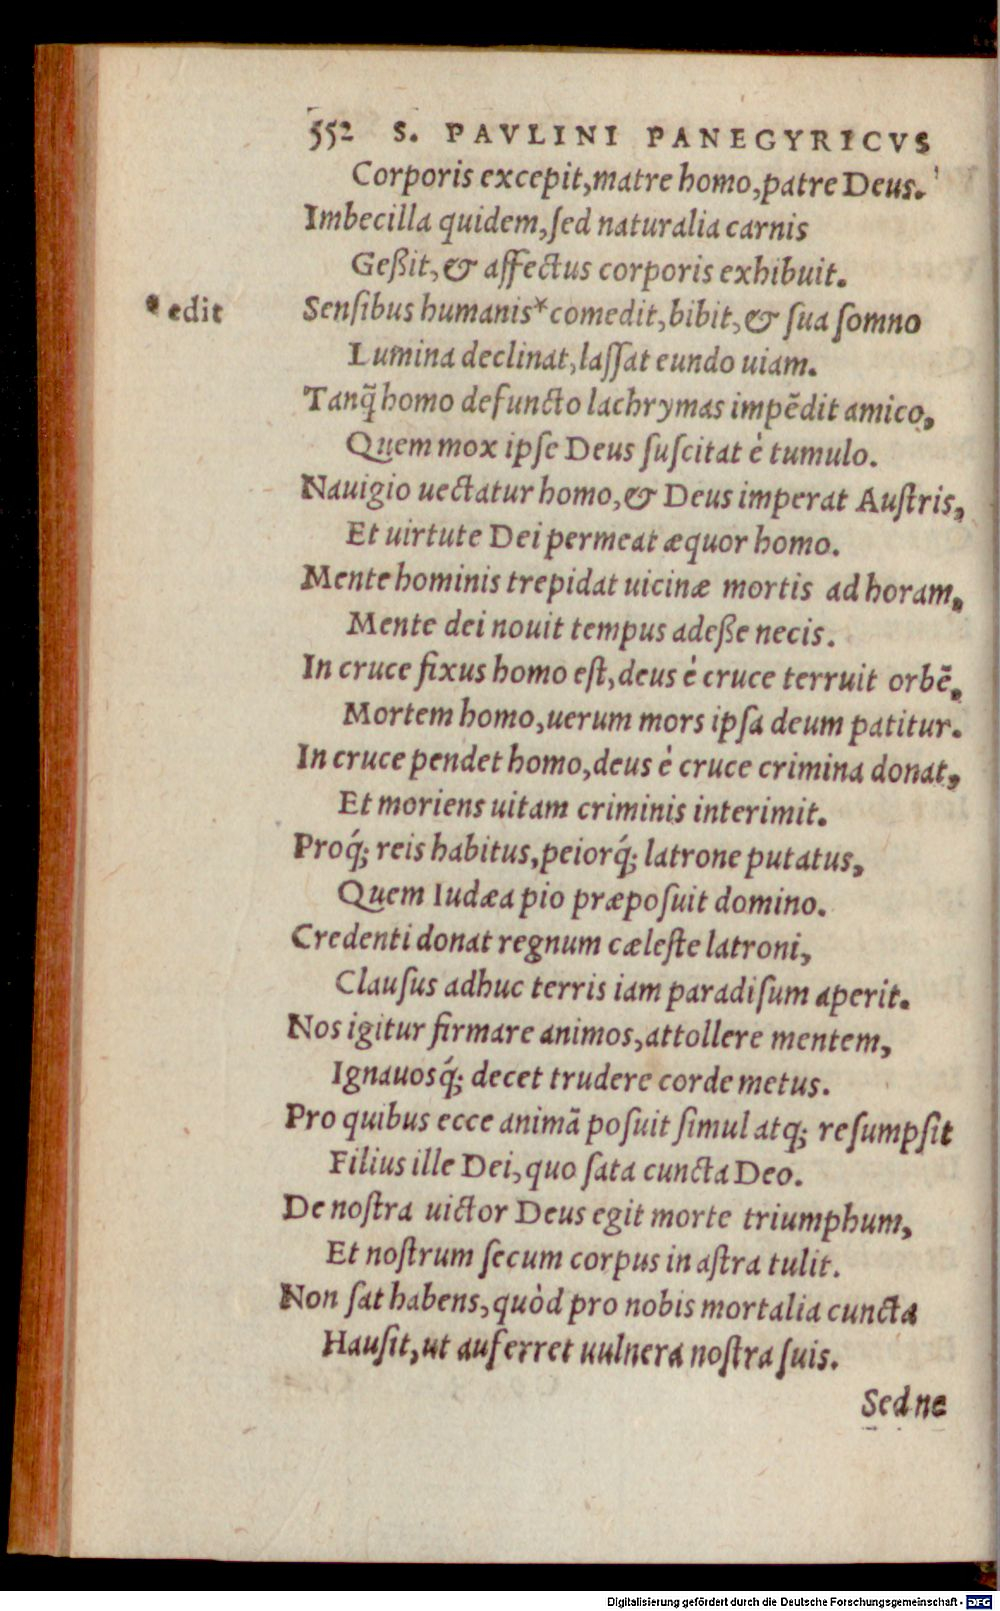 552 S. PAVLINI PANEGYRICVS
Corporis excepit, matre homo, patre Deus.
Imbecilla quidem, ſed naturalia carnis
Geßit, & affectus corporis exhibuit.
* edit
Senſibus humanis* comedit, bibit, & ſua ſomno
Lumina declinat, laſſat eundo uiam.
Tanq̃ homo defuncto lachrymas impẽdit amico,
Quem mox ipſe Deus ſuſcitat è tumulo.
Nauigio uectatur homo, & Deus imperat Auſtris,
Et uirtute Dei permeat æquor homo.
Mente hominis trepidat uicinæ mortis ad horam,
Mente dei nouit tempus adeße necis.
In cruce fixus homo eſt, deus è cruce terruit orbẽ,
Mortem homo, uerum mors ipſa deum patitur.
In cruce pendet homo, deus è cruce crimina donat,
Et moriens uitam criminis interimit.
Proq́; reis habitus, peiorq́; latrone putatus,
Quem Iudæa pio præpoſuit domino.
Credenti donat regnum cæleſte latroni,
Clauſus adhuc terris iam paradiſum aperit.
Nos igitur firmare animos, attollere mentem,
Ignauosq́; decet trudere corde metus.
Pro quibus ecce animã poſuit ſimul atq; reſumpſit
Filius ille Dei, quo ſata cuncta Deo.
De noſtra uictor Deus egit morte triumphum,
Et noſtrum ſecum corpus in aſtra tulit.
Non ſat habens, quòd pro nobis mortalia cuncta
Hauſit, ut auferret uulnera noſtra ſuis.
Sed ne
Digitalisierung gefördert durch die Deutsche Forschungsgemeinschaft - DFG